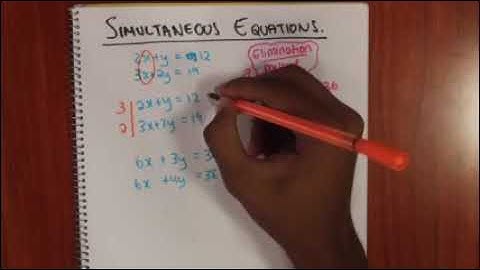 SIMULTANEOUS EQUATIONS.
2x+y = 12
3x+2y = 19
Elimination
3 | 2x+y = 12
2 | 3x+2y = 19
6x + 3y = 3
6x + 4y = 38